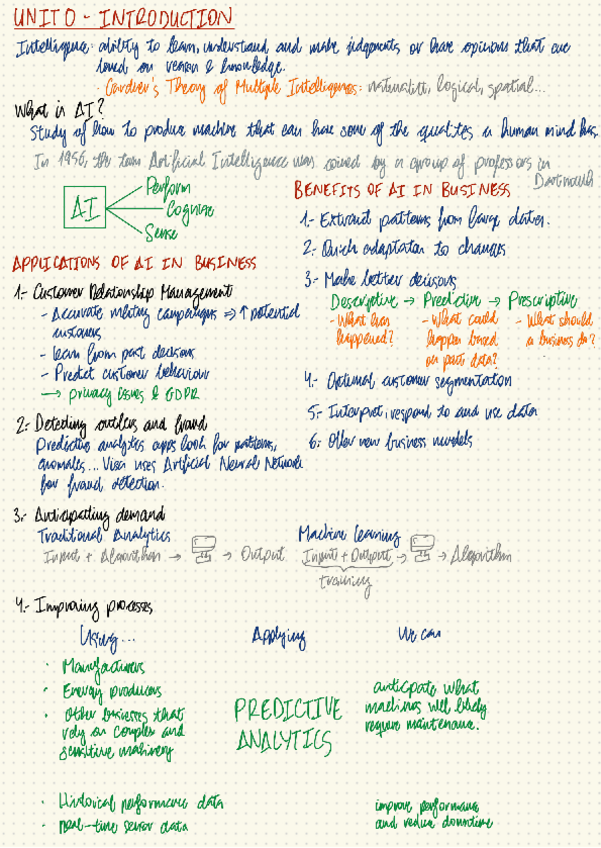 UNIT 0 - INTRODUCTION
Intelligence: ability to learn, understand and make judgments or have opinions that are
based on reason & knowledge.
· Gardner's Theory of Multiple Intelligences: naturalist, logical, spatial...
What is AI?
Study of how to produce machine that can have some of the qualities a human mind has.
In 1956, the term Artificial Intelligence was coined by a group of professors in
Dartmouth
AI
Perform
Cognise
Sense
APPLICATIONS OF AI IN BUSINESS
1.- Customer Relationship Management
- Accurate mkting campaigns => ↑ potential
customers
- learn from past decisions
- Predict customer behaviour
→ privacy issues & GDPR
2.- Detecting outliers and fraud
Predictive analytics apps look for patterns,
anomalies... Visa uses Artificial Neural Network
for fraud detection.
BENEFITS OF AI IN BUSINESS
1.- Extract patterns from large data.
2.- Quick adaptation to changes
3.- Make better decisions
Descriptive → Predictive → Prescriptive
- What has
happened?
- What could
happen based
on past data?
- What should
a business do?
4.- Optimal customer segmentation
5.- Interpret, respond to and use data
6.- Offer new business models
3.- Anticipating demand
Traditional Analytics
Input + Algorithm → → Output
Machine learning
Input + Output → → Algorithm
training
4.- Improving processes
Using...
Applying
We can
· Manufacturers
· Energy producers
· Other businesses that
rely on complex and
sensitive machinery
PREDICTIVE
ANALYTICS
anticipate what
machines will likely
require maintenance.
· Historical performance data
· real-time sensor data
improve performance
and reduce downtime